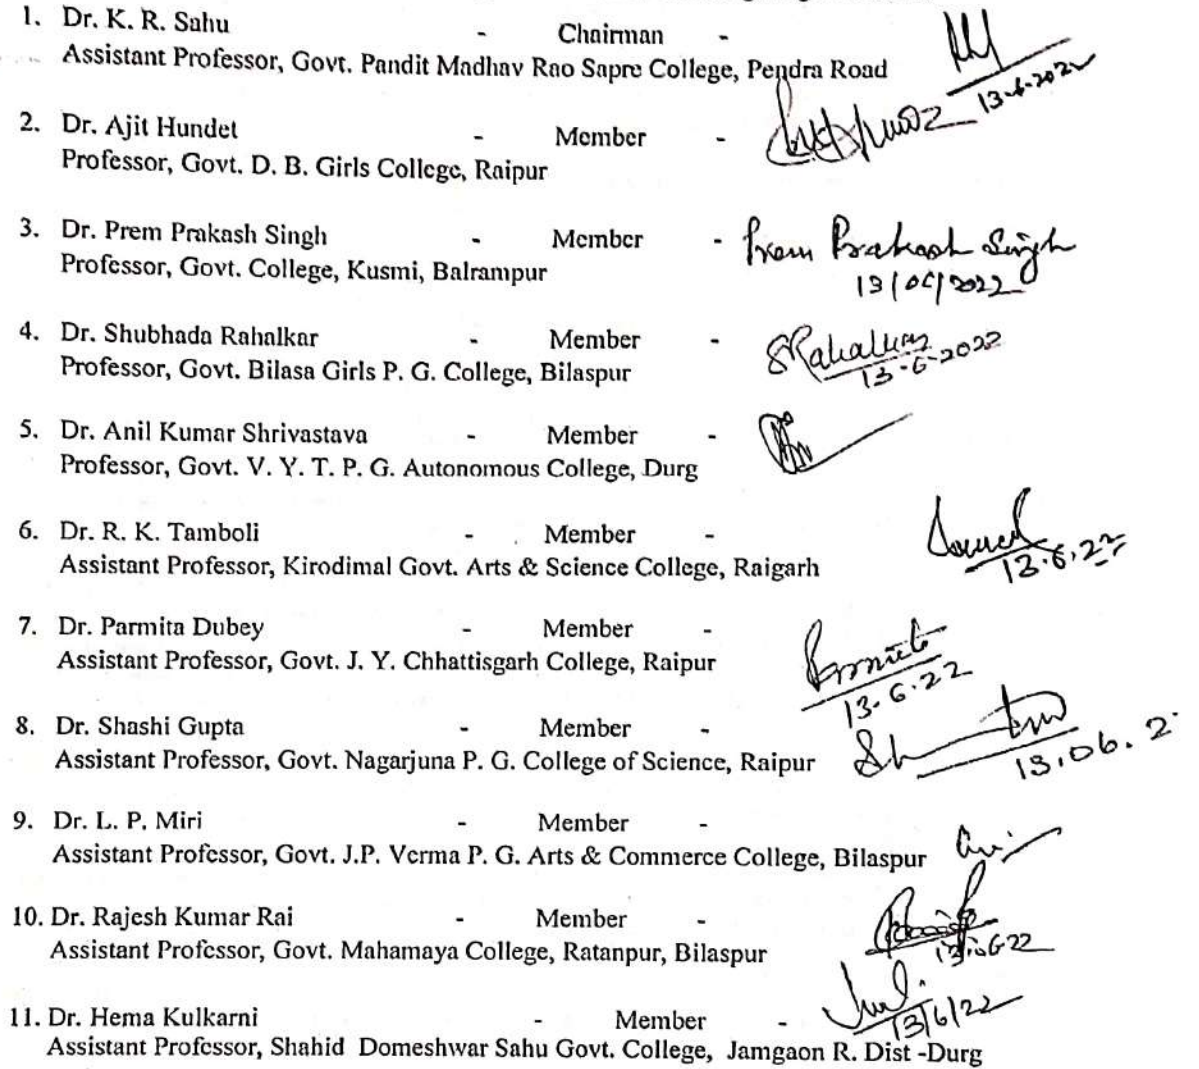 1. Dr. K. R. Sahu - Chairman -
Assistant Professor, Govt. Pandit Madhav Rao Sapre College, Pendra Road
13-6-2022
2. Dr. Ajit Hundet - Member -
Professor, Govt. D. B. Girls College, Raipur
3. Dr. Prem Prakash Singh - Member - Prem Prakash Singh
Professor, Govt. College, Kusmi, Balrampur
13/06/2022
4. Dr. Shubhada Rahalkar - Member - SRahalkar
Professor, Govt. Bilasa Girls P. G. College, Bilaspur
13-6-2022
5. Dr. Anil Kumar Shrivastava - Member -
Professor, Govt. V. Y. T. P. G. Autonomous College, Durg
6. Dr. R. K. Tamboli - Member -
Assistant Professor, Kirodimal Govt. Arts & Science College, Raigarh
13.6.22
7. Dr. Parmita Dubey - Member -
Assistant Professor, Govt. J. Y. Chhattisgarh College, Raipur
13.6.22
8. Dr. Shashi Gupta - Member -
Assistant Professor, Govt. Nagarjuna P. G. College of Science, Raipur
13.06.2
9. Dr. L. P. Miri - Member -
Assistant Professor, Govt. J.P. Verma P. G. Arts & Commerce College, Bilaspur
10. Dr. Rajesh Kumar Rai - Member -
Assistant Professor, Govt. Mahamaya College, Ratanpur, Bilaspur
13.06.22
11. Dr. Hema Kulkarni - Member -
13/6/22
Assistant Professor, Shahid Domeshwar Sahu Govt. College, Jamgaon R. Dist -Durg